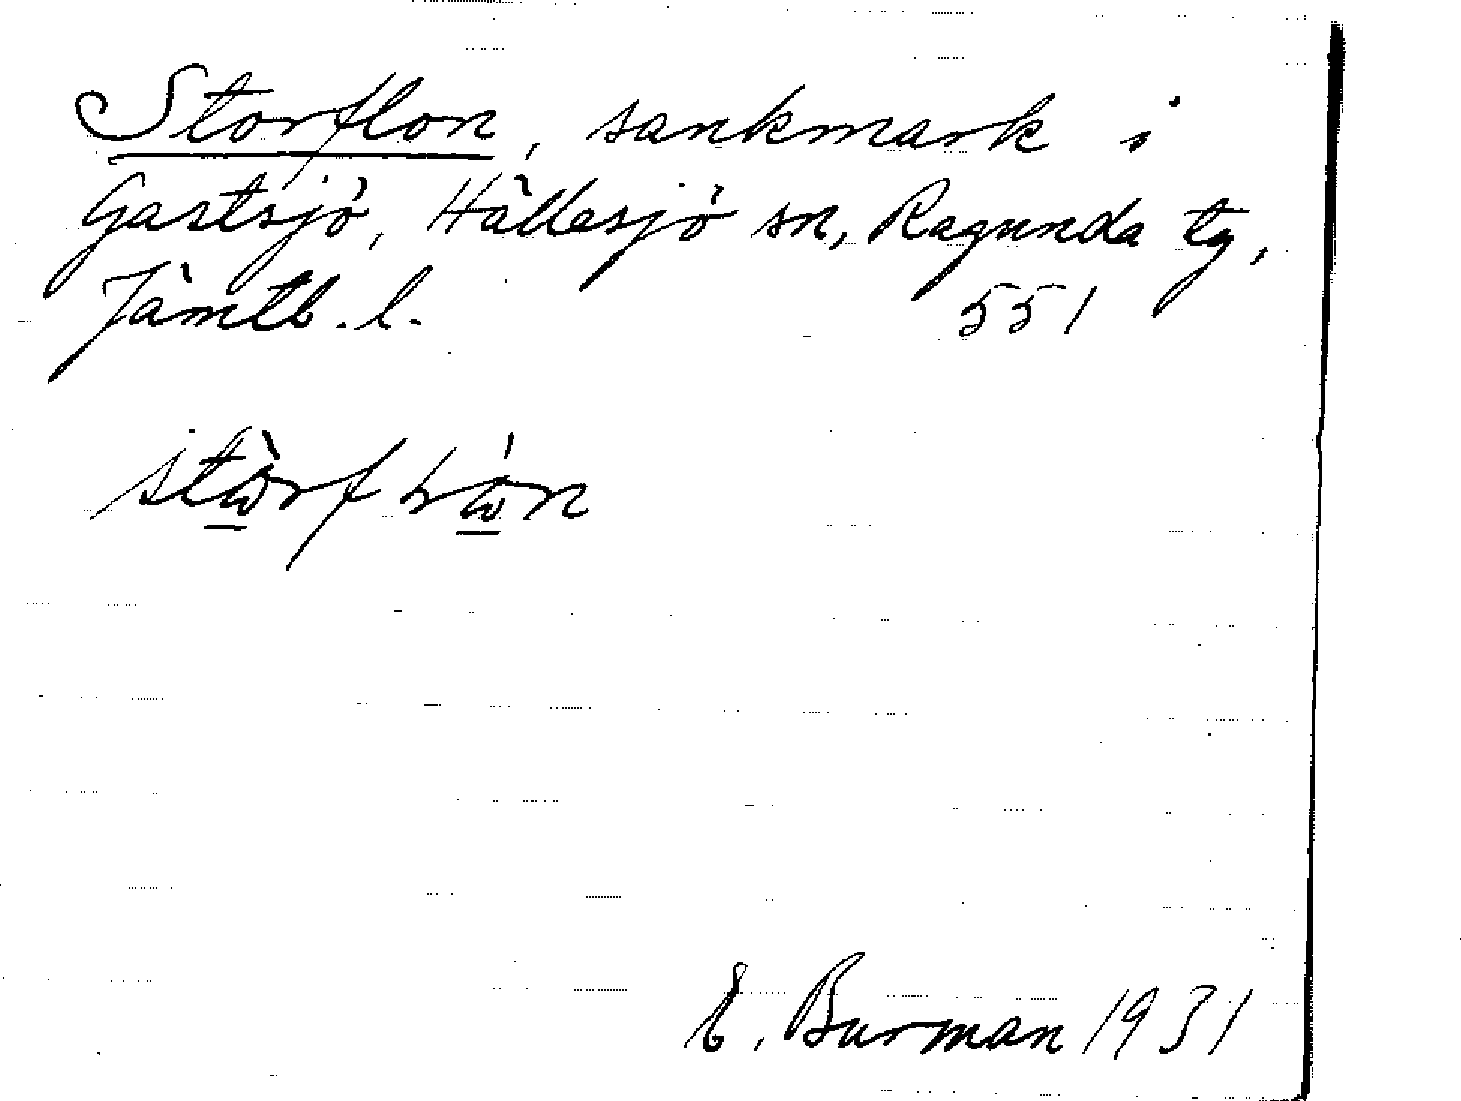 Storflon, sankmark i
Gastsjö, Hällesjö sn, Ragunda tg,
Jämtl. l. 551
E. Burman 1931